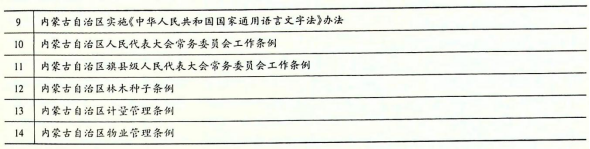 9 内蒙古自治区实施《中华人民共和国国家通用语言文字法》办法
10 内蒙古自治区人民代表大会常务委员会工作条例
11 内蒙古自治区旗县级人民代表大会常务委员会工作条例
12 内蒙古自治区林木种子条例
13 内蒙古自治区计量管理条例
14 内蒙古自治区物业管理条例